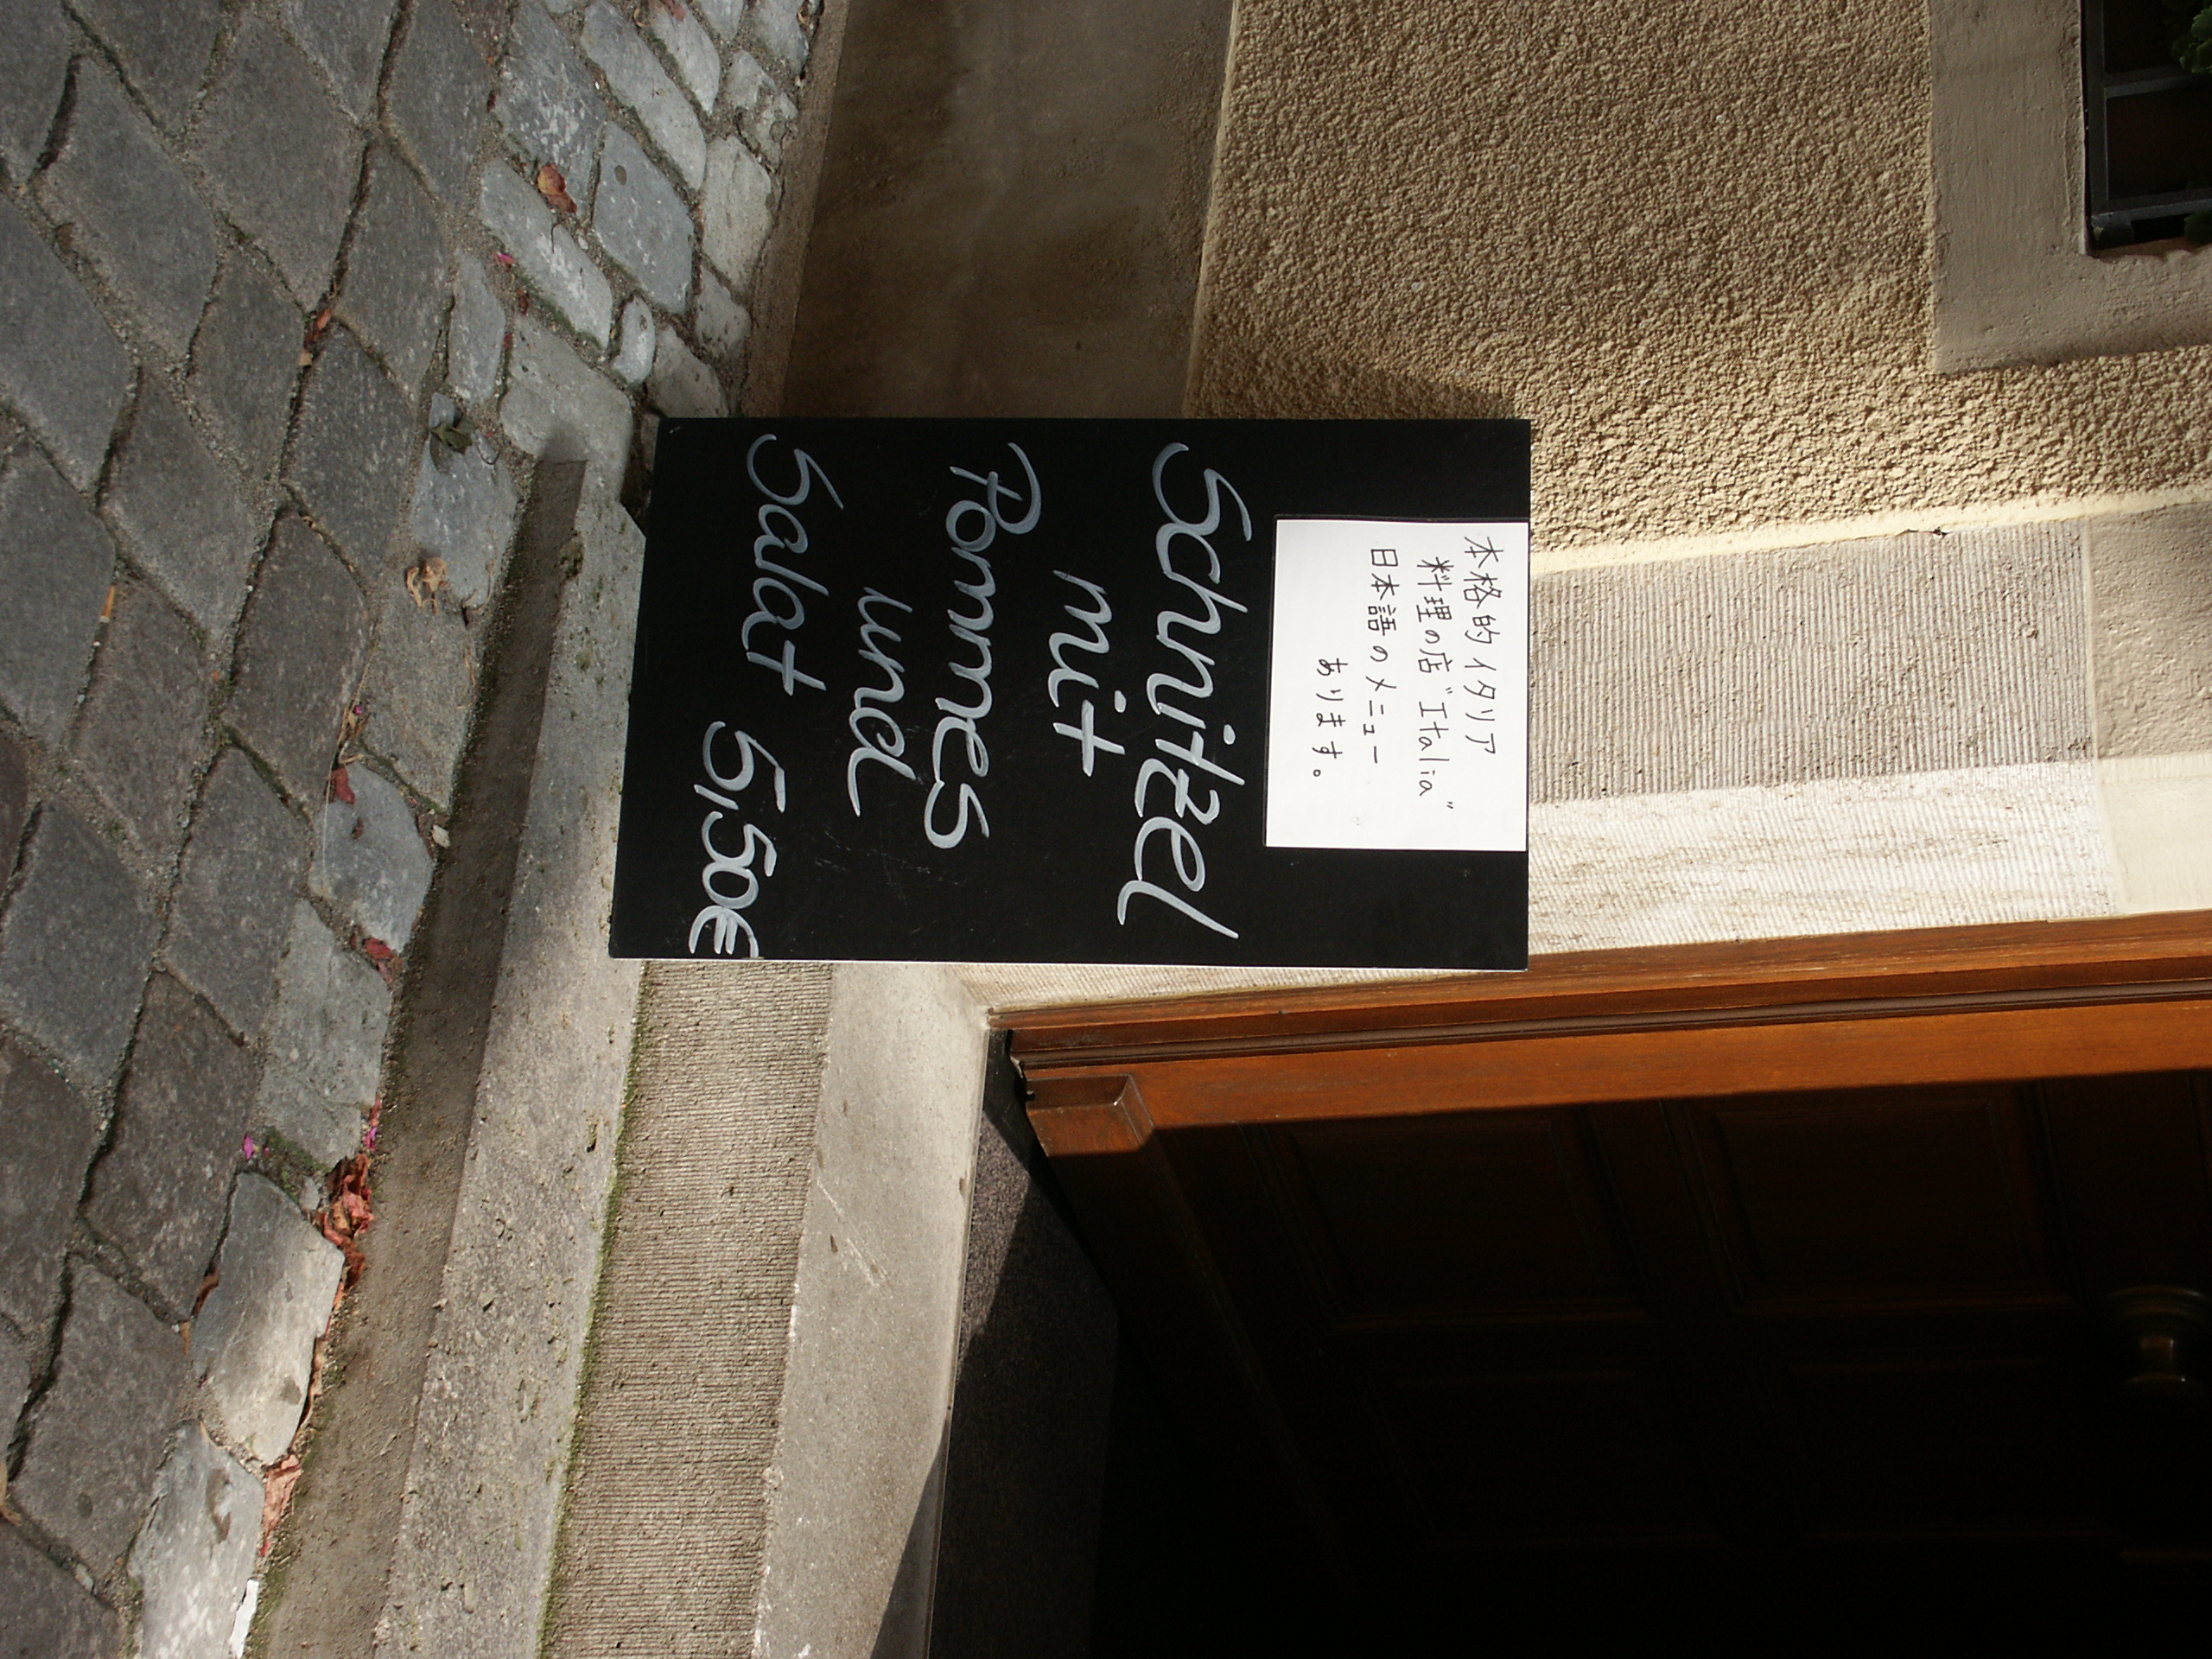 本格的イタリア
料理の店"Italia"
日本語のメニュー
あります。
Schnitzel
mit
Pommes
und
Salat 5,50€